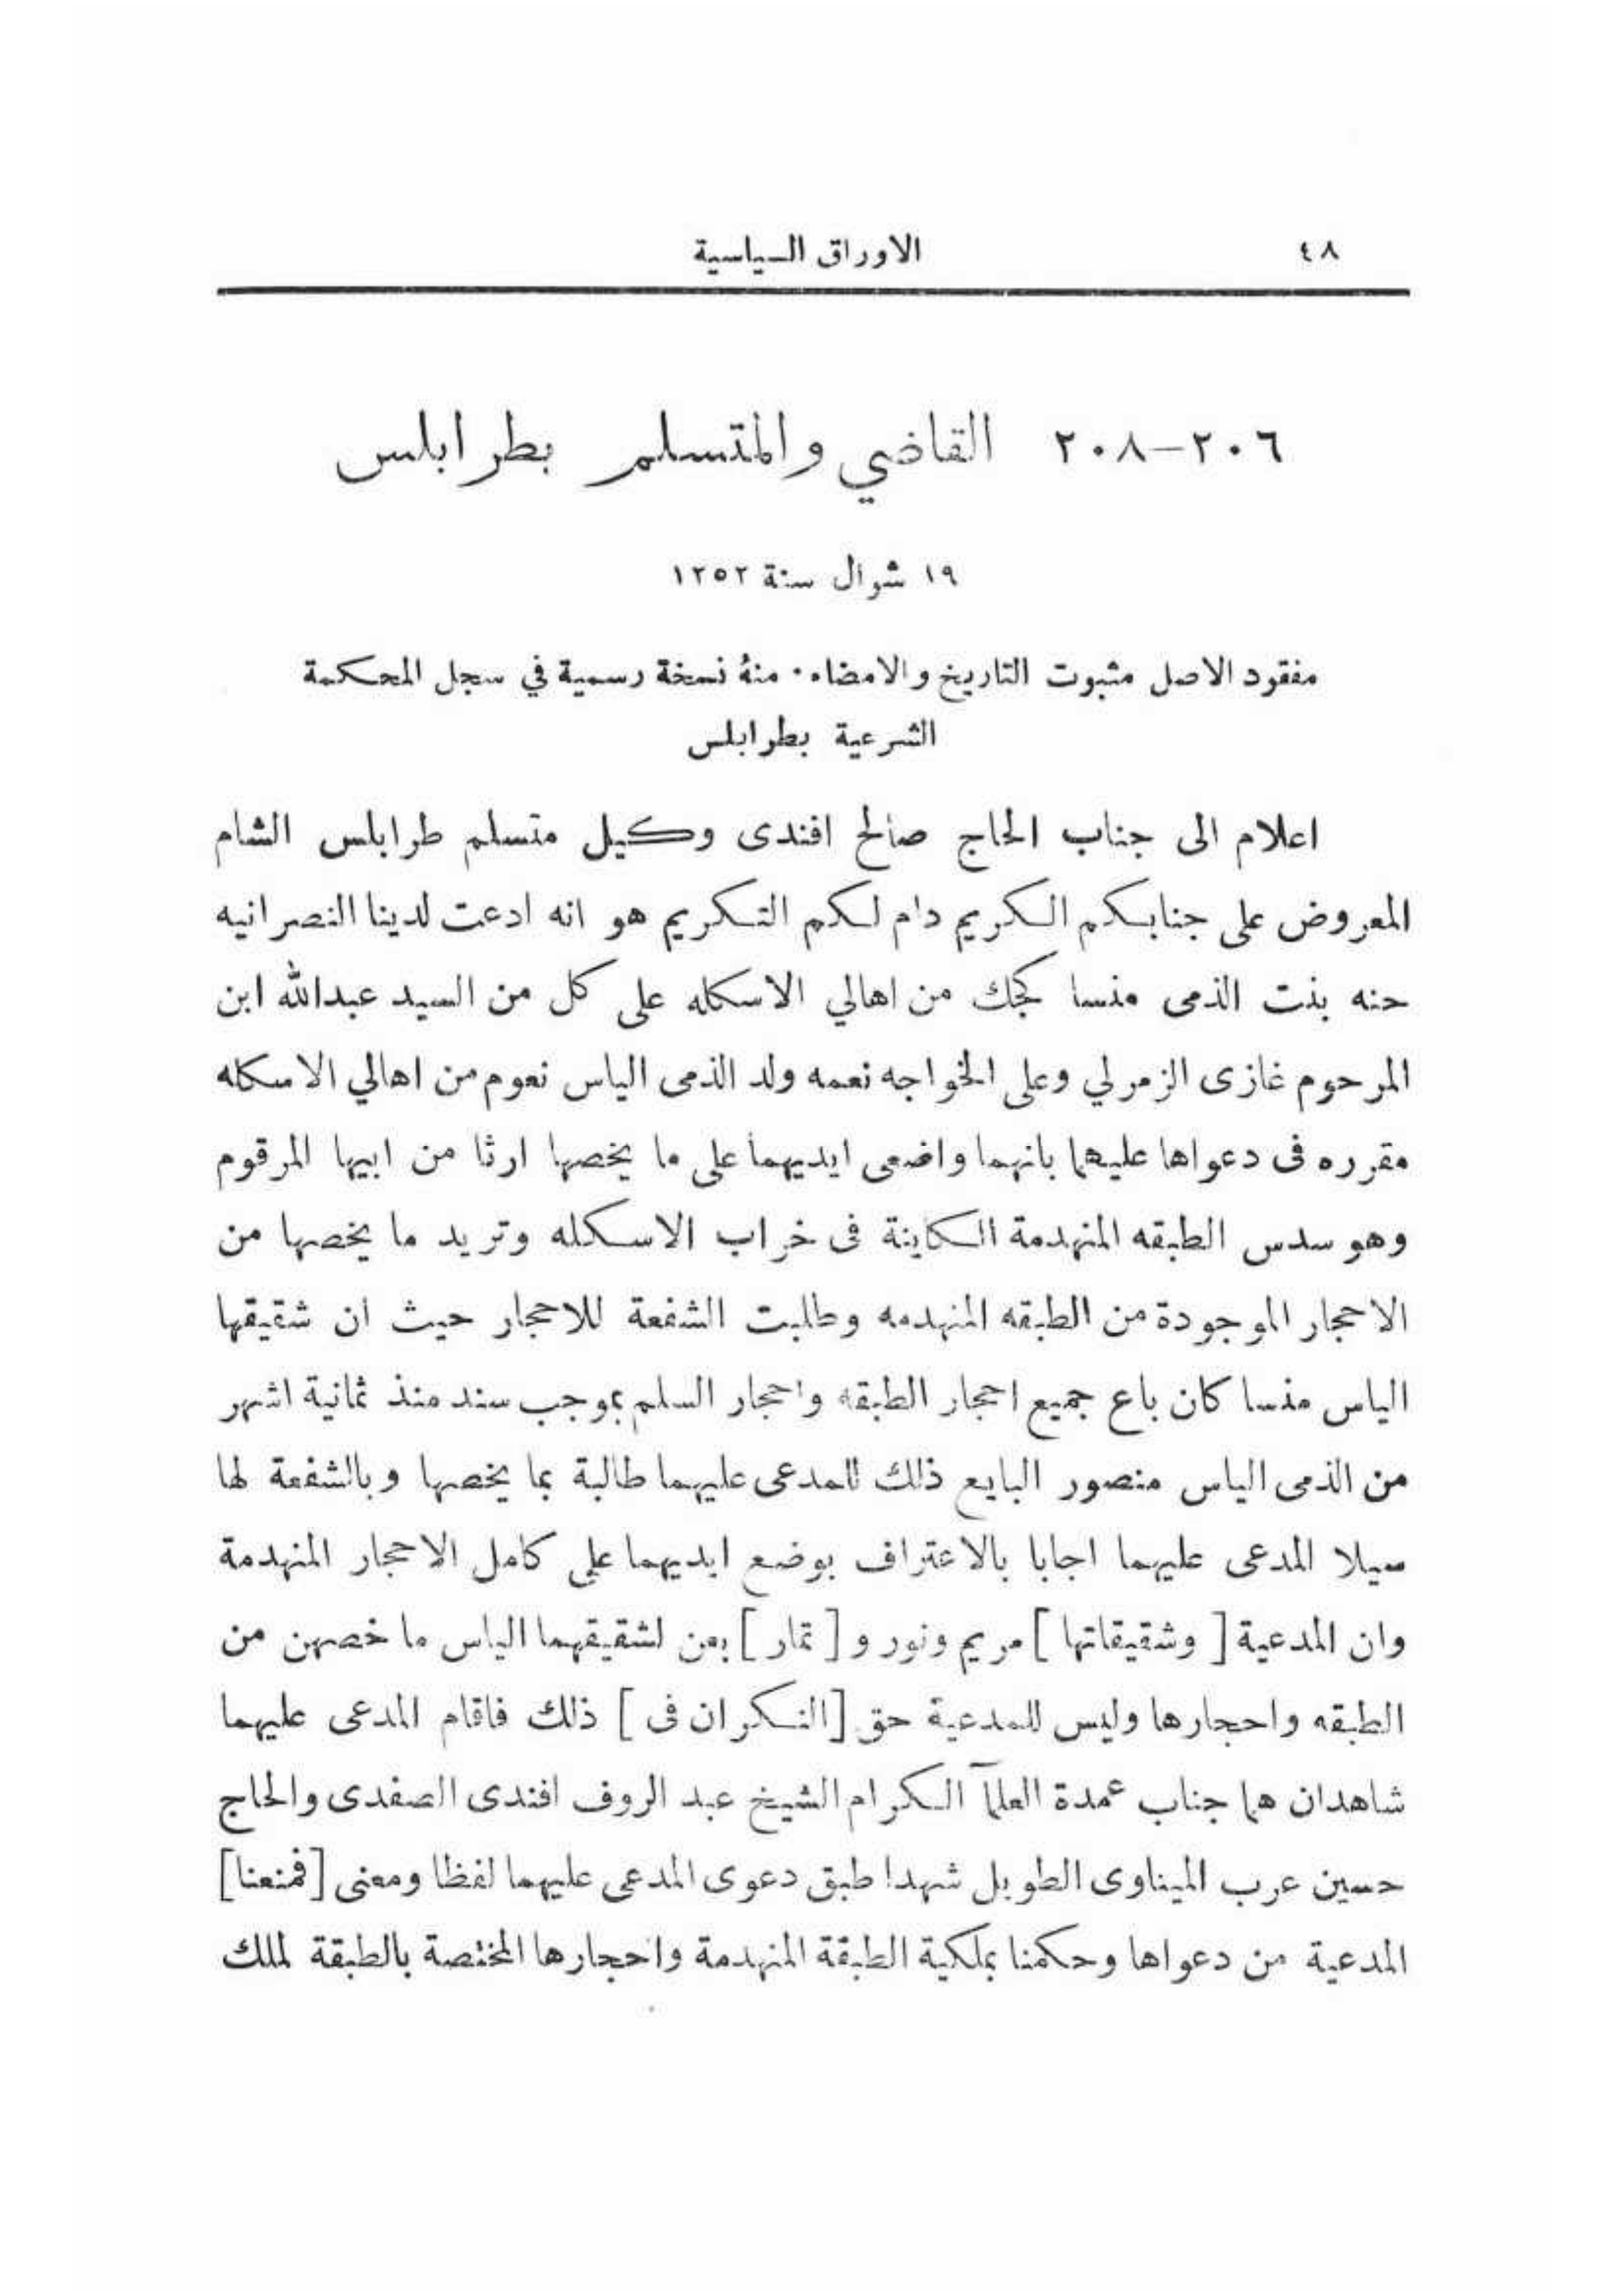 ٤٨ الاوراق السياسية
٢٠٦-٢٠٨ القاضي والمتسلم بطرابلس
١٩ شوال سنة ١٢٥٢
مفقود الاصل مثبوت التاريخ والامضاء. منهُ نسخة رسمية في سجل المحكمة
الشرعية بطرابلس
اعلام الى جناب الحاج صالح افندى وكيل متسلم طرابلس الشام
المعروض على جنابكم الكريم دام لكم التكريم هو انه ادعت لدينا النصرانيه
حنه بنت الذمى منسا كجك من اهالي الاسكله على كل من السيد عبدالله ابن
المرحوم غازى الزمرلي وعلى الخواجه نعمه ولد الذمى الياس نعوم من اهالي الاسكله
مقرره فى دعواها عليهما بانهما واضعى ايديهما على ما يخصها ارثا من ابيها المرقوم
وهو سدس الطبقه المنهدمة الكاينة فى خراب الاسكله وتريد ما يخصها من
الاحجار الموجودة من الطبقه المنهدمه وطلبت الشفعة للاحجار حيث ان شقيقها
الياس منسا كان باع جميع احجار الطبقه واحجار السلم بموجب سند منذ ثمانية اشهر
من الذمى الياس منصور البايع ذلك للمدعى عليهما طالبة بما يخصها وبالشفعة لها
سيلا المدعى عليهما اجابا بالاعتراف بوضع ايديهما على كامل الاحجار المنهدمة
وان المدعية [ وشقيقاتها ] مريم ونور و [ تمار ] بعن لشقيقهما الياس ما خصهن من
الطبقه واحجارها وليس للمدعية حق [النكران فى ] ذلك فاقام المدعى عليهما
شاهدان هما جناب عمدة العلمآ الكرام الشيخ عبد الروف افندى الصفدى والحاج
حسين عرب الميناوى الطويل شهدا طبق دعوى المدعى عليهما لفظا ومعنى [فمنعنا]
المدعية من دعواها وحكمنا بملكية الطبقة المنهدمة واحجارها المختصة بالطبقة لملك